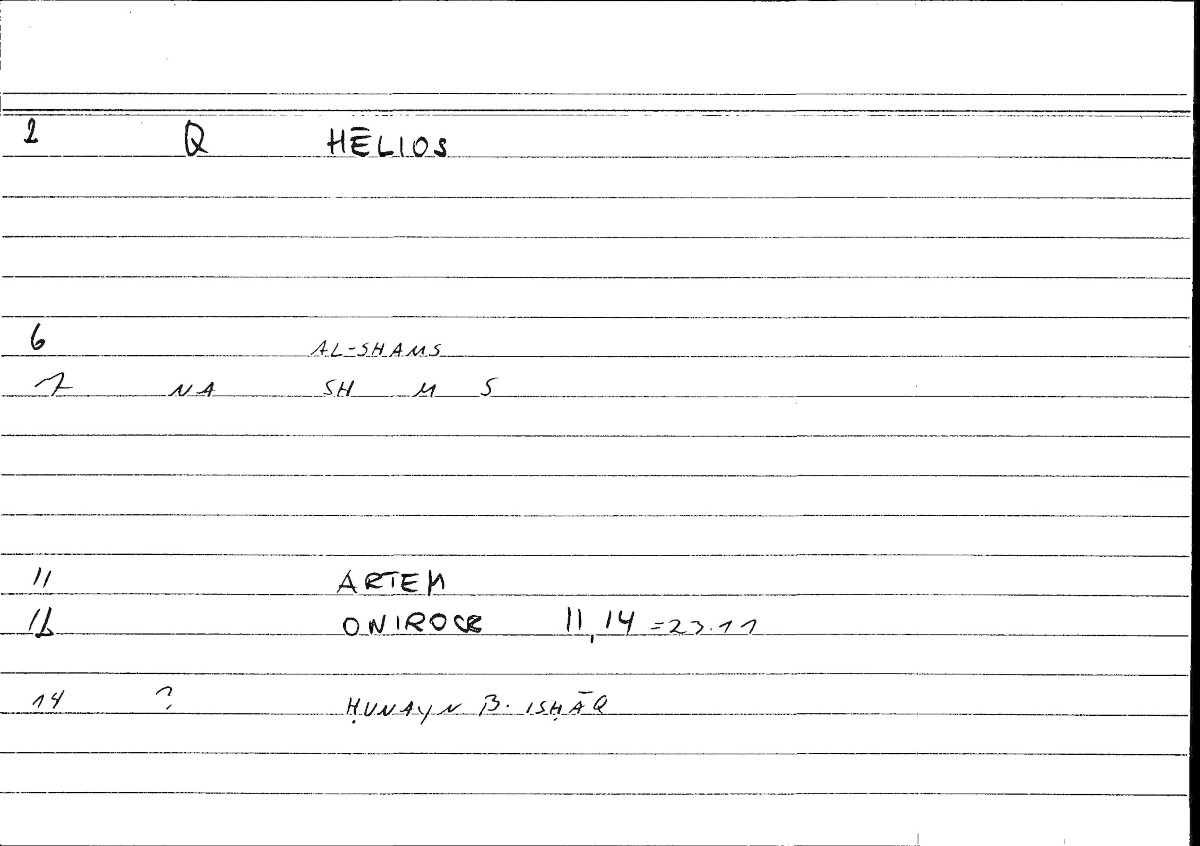 2 Q HĒLIOS
6 AL-SHAMS
7 NA SH M S
11 ARTEM
12 ONIROCR 11,14 =23.11
14 ? ḤUNAYN B. ISḤĀQ